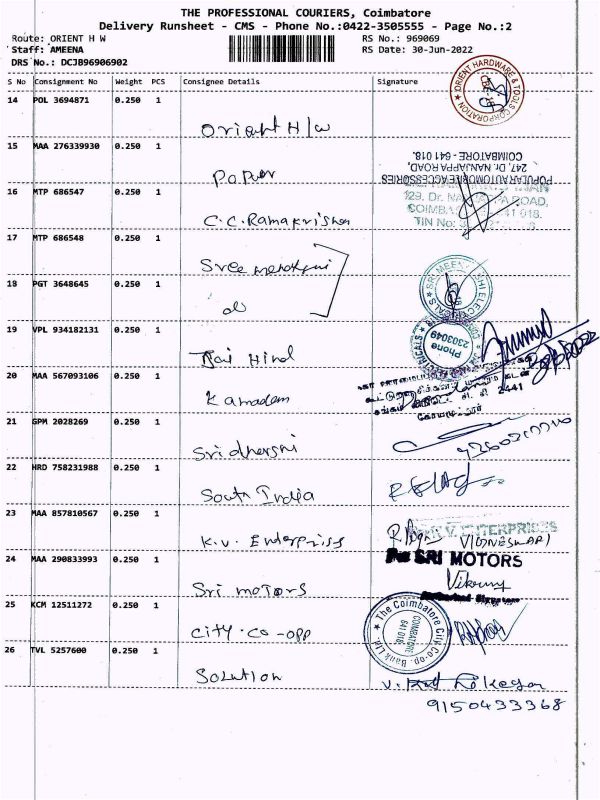 THE PROFESSIONAL COURIERS, Coimbatore
Delivery Runsheet - CMS - Phone No.:0422-3505555 - Page No.:2
Route: ORIENT H W
RS No.: 969069
Staff: AMEENA
RS Date: 30-Jun-2022
DRS No: DCJB96906902
S No Consignment No Weight PCS Consignee Details Signature
14 POL 3694871 0.250 1
Orient H/W
ORIENT HARDWARE & TOOLS CORPORATION
15 MAA 276339930 0.250 1
POPULAR AUTOMOBILE ACCESSORIES
247, Dr. NANJAPPA ROAD,
COIMBATORE - 641 018.
16 MTP 686547 0.250 1
C.C. Ramakrishna
129, Dr. ROAD,
TIN No:
17 MTP 686548 0.250 1
Sree
18 PGT 3648645 0.250 1
do
19 VPL 934182131 0.250 1
Jai Hind
Phone
2303049
20 MAA 567093106 0.250 1
Kamadam
2441
21 GPM 2028269 0.250 1
Sri dharshi
22 HRD 758231988 0.250 1
South India
23 MAA 857810567 0.250 1
K.V. Enterpriss
V. ENTERPRISES
VIGNESWARI
24 MAA 290833993 0.250 1
Sri motors
For SRI MOTORS
25 KCM 12511272 0.250 1
City. Co-opp
The Coimbatore City Co-op. Bank Ltd.
COIMBATORE
641 018
26 TVL 5257600 0.250 1
Solution
9150433368